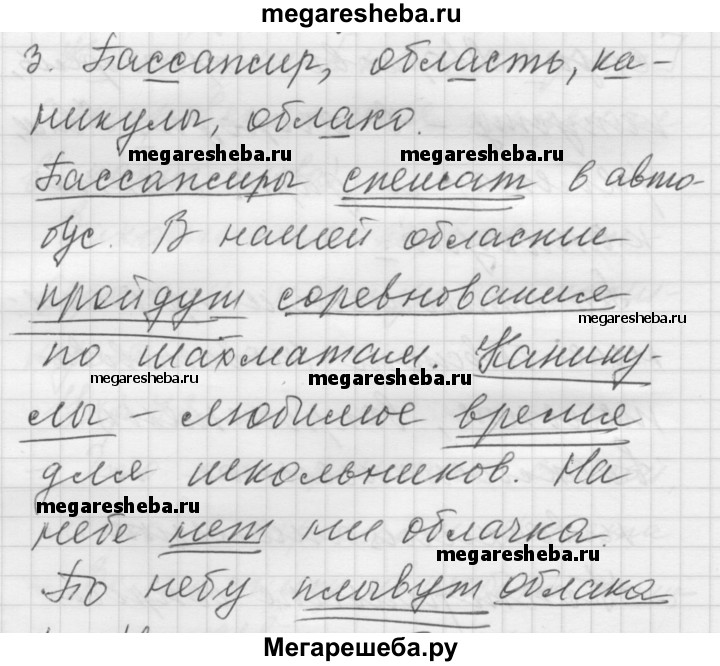 megaresheba.ru
3. Пассажир, область, ка-
никулы, облако.
megaresheba.ru megaresheba.ru
Пассажиры спешат в авто-
бус. В нашей области
пройдут соревнования
megaresheba.ru
по шахматам. Канику-
megaresheba.ru megaresheba.ru
лы – любимое время
для школьников. На
megaresheba.ru
небе нет ни облачка.
megaresheba.ru
По небу плывут облака
Мегарешеба.ру